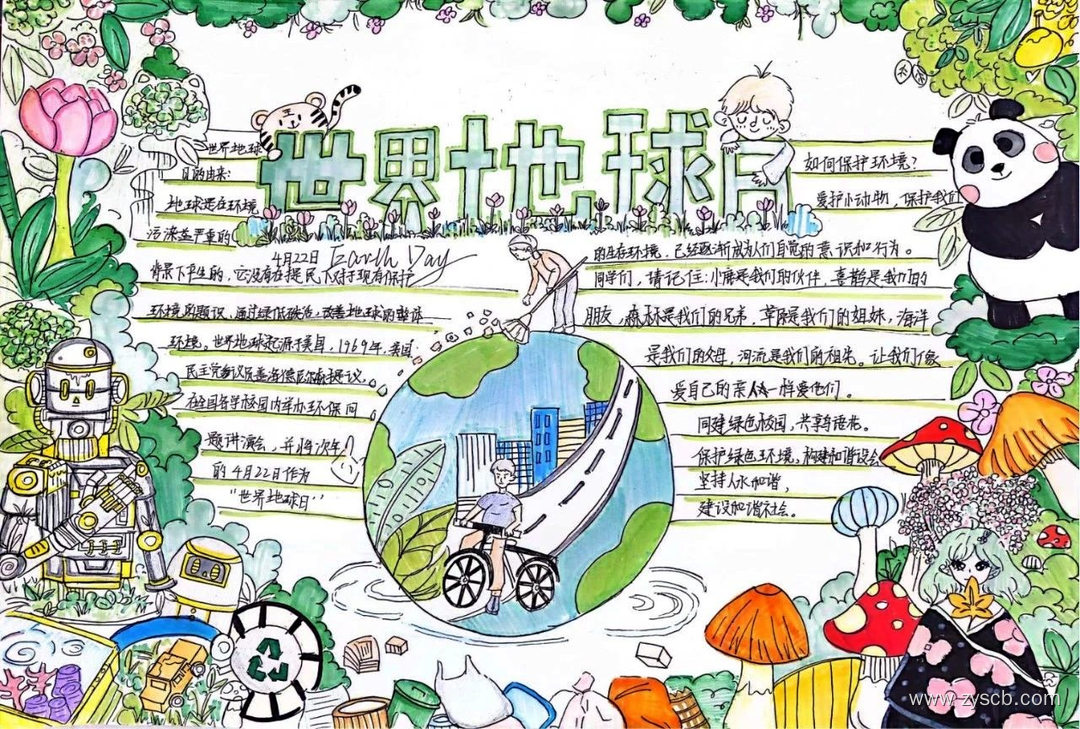 世界地球日
4月22日 Earth Day
世界地球
目的由来:
地球是在环境
污染益严重的
背景下产生的,它没有在提民
环境的题识,通过绿低碳活,改善地球的整体
环境。世界地球起源于美目,1969年,美国
民主党参议员盖洛德尼尔森提议,
在全国各学校园内举办环保问
题讲演会,并将次年
的4月22日作为
“世界地球日”
如何保护环境?
爱护小动物,保护我们
的生存环境,已经逐渐成为人们自觉的意识和行为。
同学们,请记住:小鹿是我们的伙伴,喜鹊是我们的
朋友,森林是我们的兄弟,草原是我们的姐妹,海洋
是我们的父母,河流是我们的祖先。让我们像
爱自己的亲人一样爱他们。
同建绿色校园,共享鸟语花。
保护绿色环境,构建和谐设会
坚持人水和谐,
建设和谐社会。
www.zyscb.com